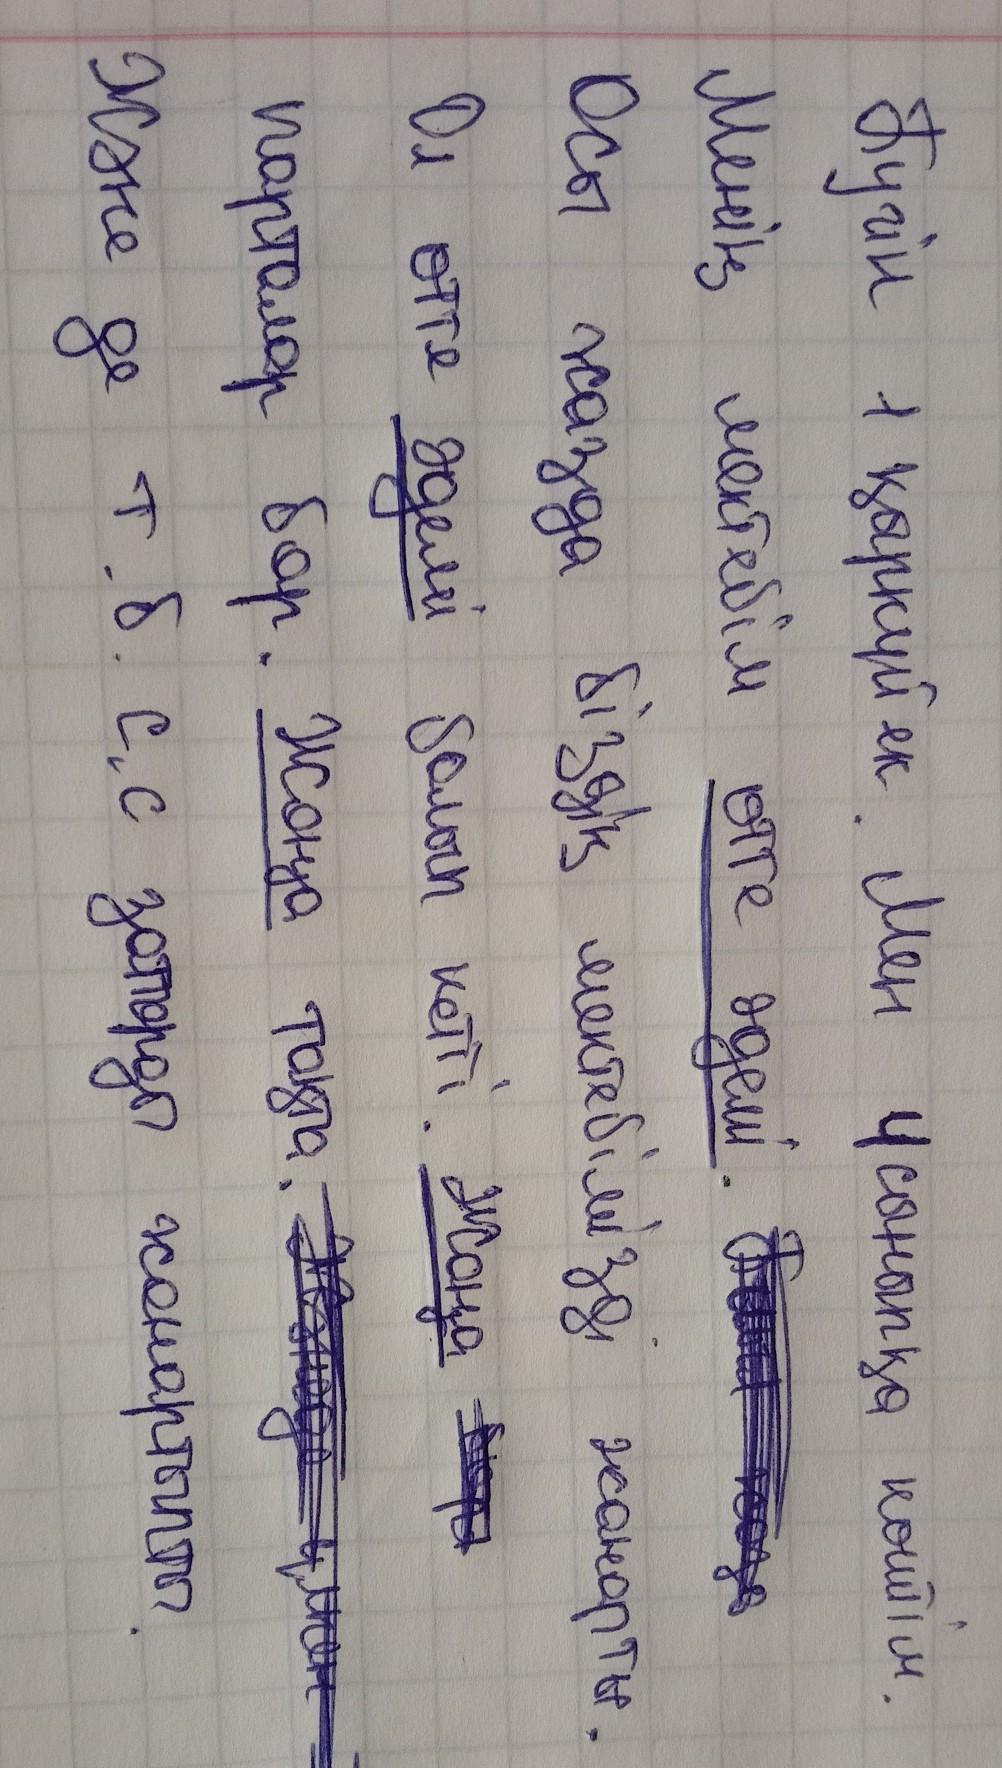 Бүгін 1 қаркүйек. Мен 4 сыныпқа көшім.
Менің мектебім өте әдемі.
Осы жазда біздің мектебімізді жанарты.
Ол өте әдемі болып кетті. Жаңа
парталар бар. Жаңа тақта.
Және де т.б. с,с затарды жанартыпты.